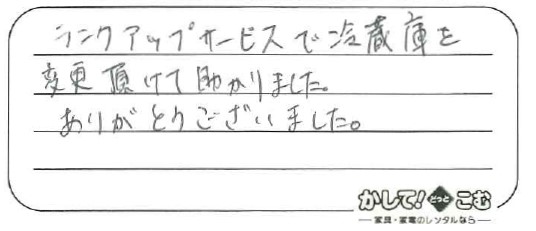 ランクアップサービスで冷蔵庫を
変更頂けて助かりました。
ありがとうございました。
かして!どっとこむ
家具・家電のレンタルなら